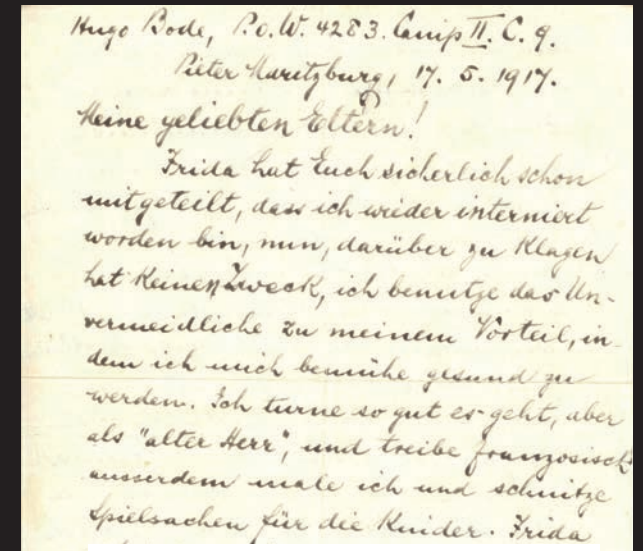 Hugo Bode, P.o.W. 4283. Camp II. C. 9.
Pieter Maritzburg, 17. 5. 1917.
Meine geliebten Eltern!
Frida hat Euch sicherlich schon
mitgeteilt, dass ich wieder interniert
worden bin, nun, darüber zu Klagen
hat Keinen Zweck, ich benutze das Un-
vermeidliche zu meinem Vorteil, in-
dem ich mich bemühe gesund zu
werden. Ich turne so gut es geht, aber
als "alter Herr", und treibe französisch
ausserdem male ich und schnitze
Spielsachen für die Kinder. Frida